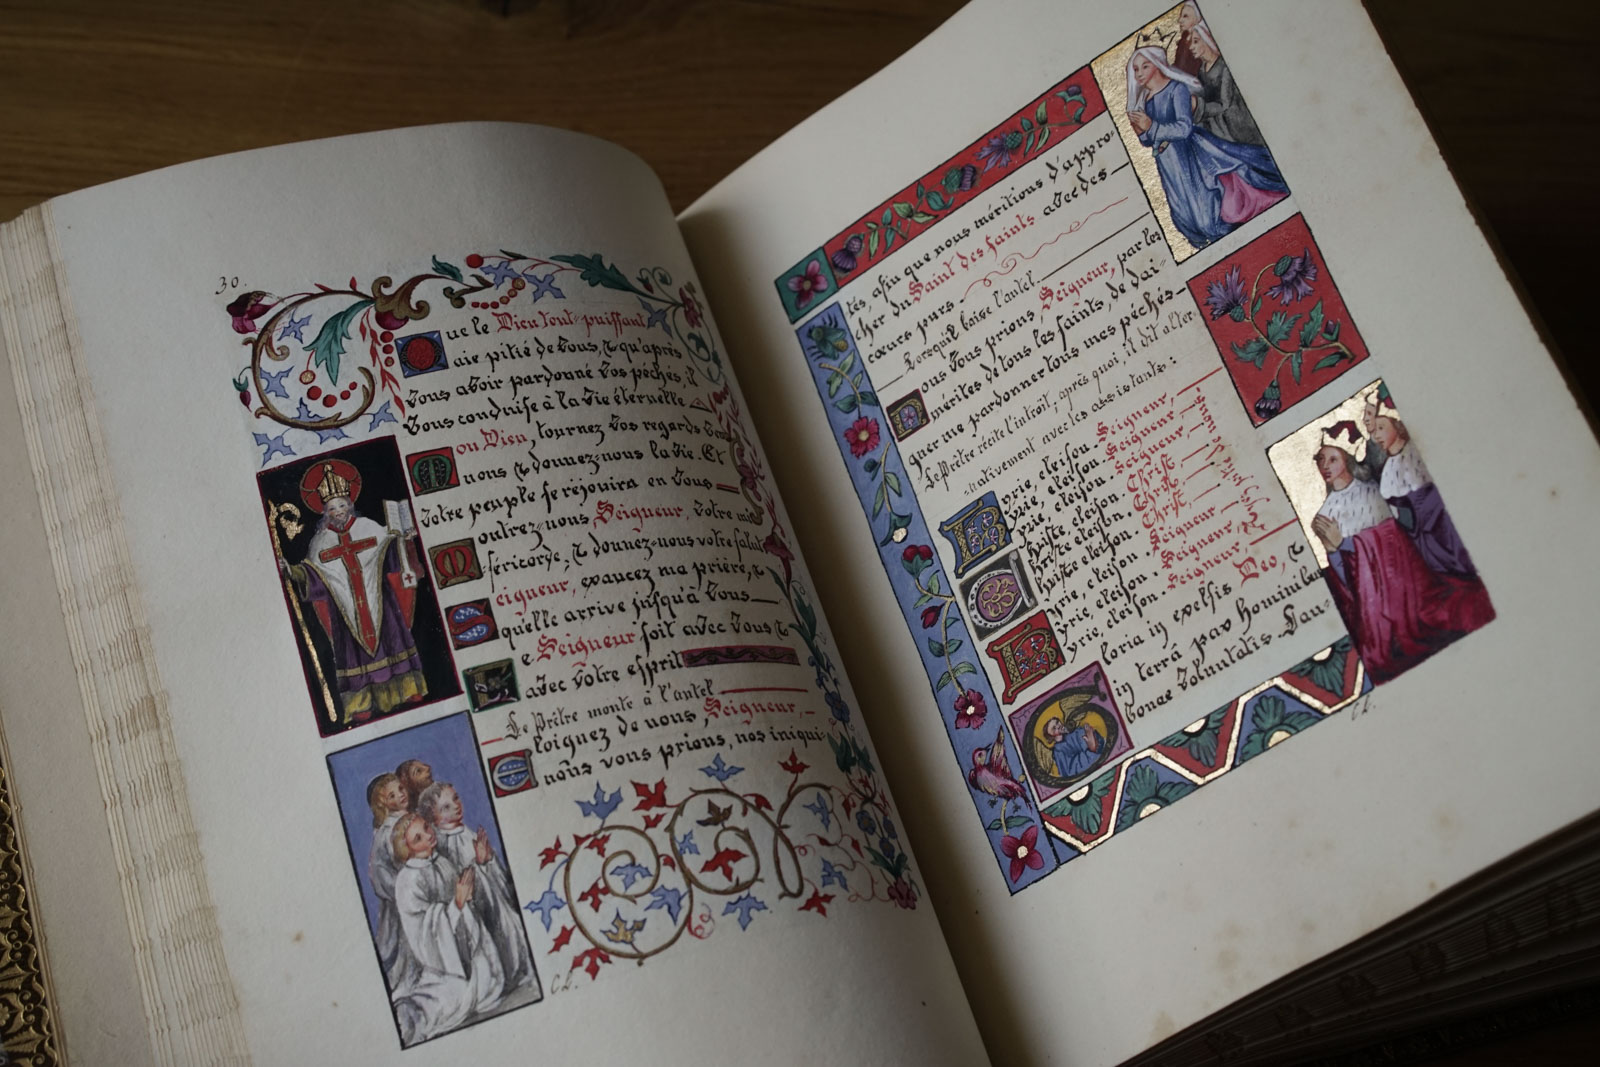 30.
Que le Dieu tout-puissant
aie pitié de vous, & qu'après
vous avoir pardonné vos péchés, il
vous conduise à la vie éternelle
Mon Dieu, tournez vos regards vers
nous & donnez-nous la vie. Et
votre peuple se réjouira en vous
Montrez-nous Seigneur, votre mi-
séricorde, & donnez-nous votre salut
Seigneur, exaucez ma prière, &
qu'elle arrive jusqu'à vous
Le Seigneur soit avec vous &
avec votre esprit
Le Prêtre monte à l'autel
Eloignez de nous, Seigneur,
nous vous prions, nos iniqui-
C L.
tés, afin que nous méritions d'appro-
cher du Saint des Saints avec des
cœurs purs
Lorsqu'il baise l'autel
Nous vous prions Seigneur, par les
mérites de tous les saints, de dai-
gner me pardonner tous mes péchés
Le Prêtre récite l'introït, après quoi, il dit alter-
nativement avec les assistants :
Kyrie, eleison. Seigneur,
Kyrie, eleison. Seigneur,
Kyrie, eleison. Seigneur,
Christe, eleison. Christ,
Christe eleison. Christ,
Christe eleison. Christ,
Kyrie, eleison. Seigneur
Kyrie, eleison. Seigneur,
Kyrie, eleison. Seigneur,
Gloria in exelsis Deo, &
in terrâ pax hominibus
bonae voluntatis. Lau-
C L.